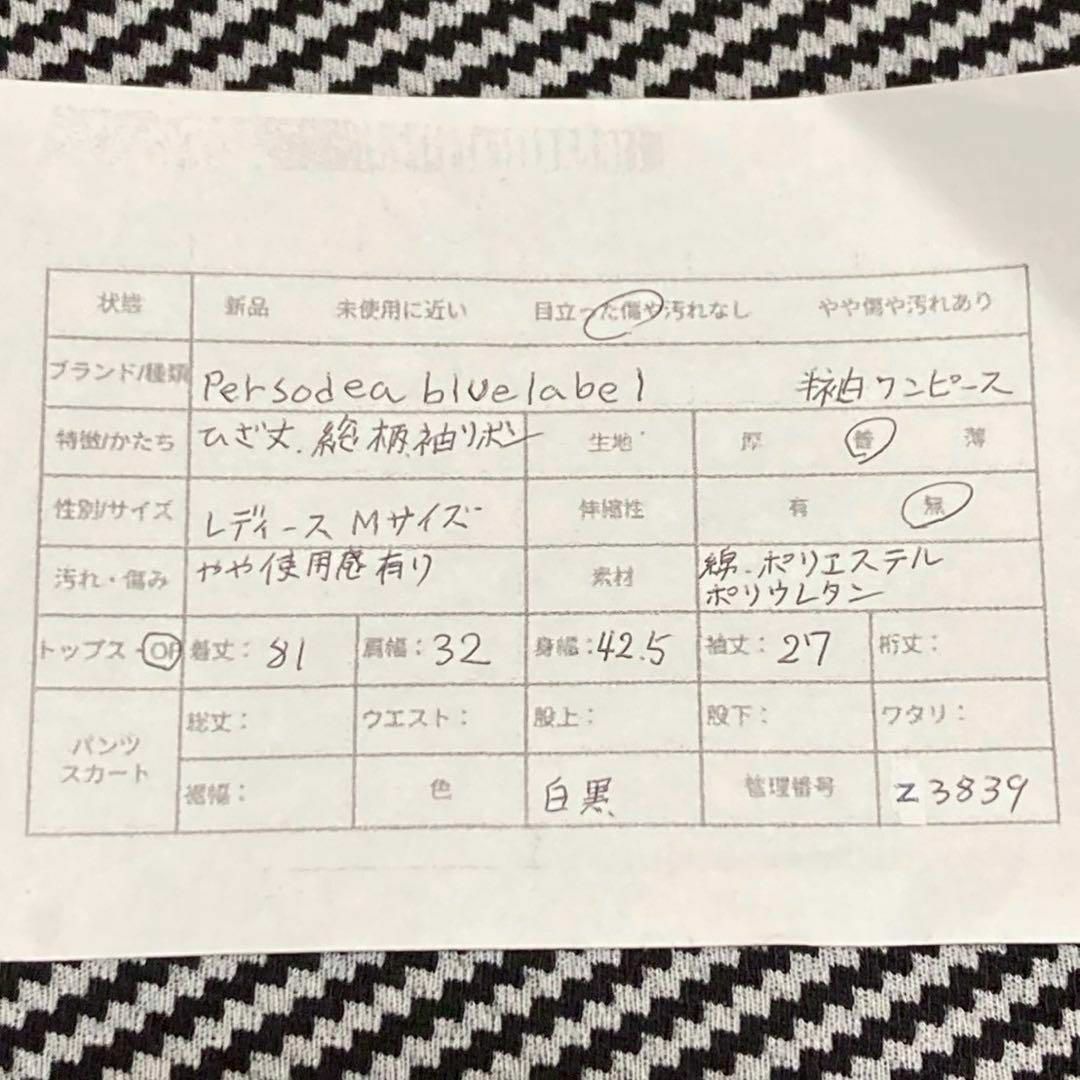 状態 新品 未使用に近い 目立った傷や汚れなし やや傷や汚れあり
ブランド/種類 Persodea bluelabel 半袖ワンピース
特徴/かたち ひざ丈.総柄袖リボン 生地 厚 普 薄
性別/サイズ レディース Mサイズ 伸縮性 有 無
汚れ・傷み やや使用感有り 素材 綿.ポリエステル
ポリウレタン
トップス・OP 着丈：81 肩幅：32 身幅：42.5 袖丈：27 裄丈：
パンツ
スカート
総丈： ウエスト： 股上： 股下： ワタリ：
裾幅： 色 白黒 管理番号 z3839